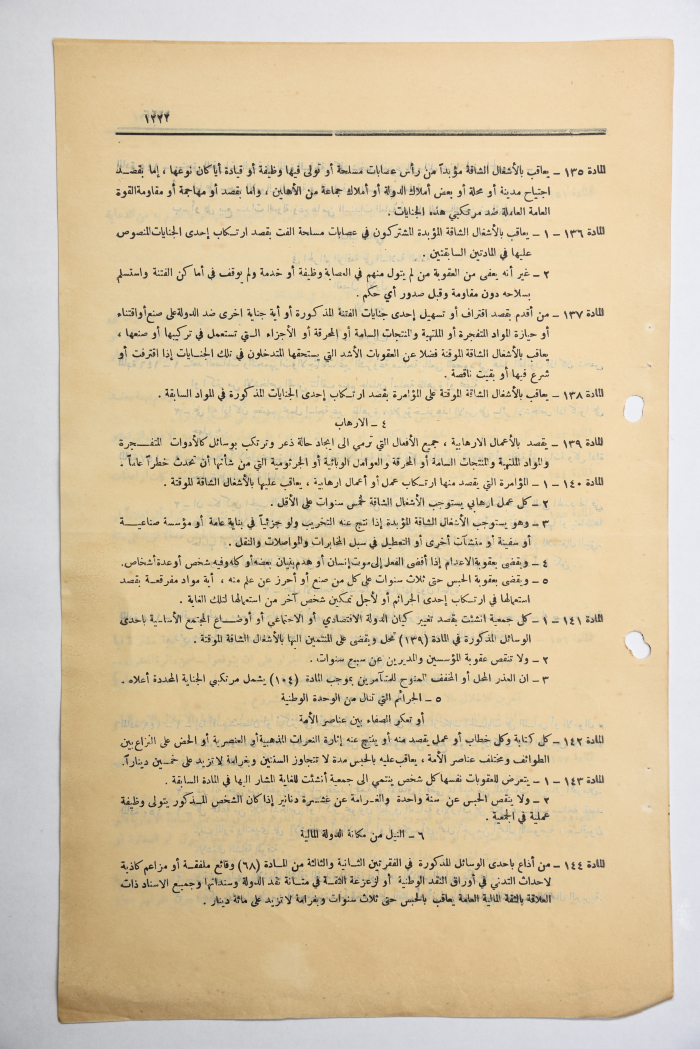 ١٢٢٢
المادة ١٣٥ – يعاقب بالأشغال الشاقة مؤبداً من رأس عصابات مسلحة أو تولى فيها وظيفة أو قيادة أياً كان نوعها ، إما بقصد
اجتياح مدينة أو محلة أو بعض أملاك الدولة أو أملاك جماعة من الأهلين ، واما بقصد أو مهاجمة أو مقاومة القوة
العامة العاملة ضد مرتكبي هذه الجنايات .
المادة ١٣٦ – ١ – يعاقب بالأشغال الشاقة المؤبدة المشتركون في عصابات مسلحة الفت بقصد ارتكاب إحدى الجنايات المنصوص
عليها في المادتين السابقتين .
٢ – غير أنه يعفى من العقوبة من لم يتول منهم في العصابة وظيفة أو خدمة ولم يوقف في أماكن الفتنة واستسلم
بسلاحه دون مقاومة وقبل صدور أي حكم .
المادة ١٣٧ – من أقدم بقصد اقتراف أو تسهيل إحدى جنايات الفتنة المذكورة أو أية جناية اخرى ضد الدولة على صنع أو اقتناء
أو حيازة المواد المتفجرة أو الملتهبة والمنتجات السامة أو المحرقة أو الأجزاء التي تستعمل في تركيبها أو صنعها ،
يعاقب بالأشغال الشاقة الموقتة فضلا عن العقوبات الأشد التي يستحقها المتدخلون في تلك الجنايات إذا اقترفت أو
شرع فيها أو بقيت ناقصة .
المادة ١٣٨ – يعاقب بالأشغال الشاقة الموقتة على المؤامرة بقصد ارتكاب إحدى الجنايات المذكورة في المواد السابقة .
٤ – الارهاب
المادة ١٣٩ – يقصد بالأعمال الارهابية ، جميع الأفعال التي ترمي الى ايجاد حالة ذعر وترتكب بوسائل كالأدوات المتفجرة
والمواد الملتهبة والمنتجات السامة أو المحرقة والعوامل الوبائية أو الجرثومية التي من شأنها أن تحدث خطراً عاماً .
المادة ١٤٠ – ١ – المؤامرة التي يقصد منها ارتكاب عمل أو أعمال ارهابية ، يعاقب عليها بالأشغال الشاقة الموقتة .
٢ – كل عمل ارهابي يستوجب الأشغال الشاقة لخمس سنوات على الأقل .
٣ – وهو يستوجب الأشغال الشاقة المؤبدة إذا نتج عنه التخريب ولو جزئياً في بناية عامة أو مؤسسة صناعية
أو سفينة أو منشآت أخرى أو التعطيل في سبل المخابرات والمواصلات والنقل .
٤ – ويقضى بعقوبة الاعدام إذا أفضى الفعل إلى موت إنسان أو هدم بنيان بعضه أو كله وفيه شخص أو عدة أشخاص.
٥ – ويقضى بعقوبة الحبس حتى ثلاث سنوات على كل من صنع أو أحرز عن علم منه ، أية مواد مفرقعة بقصد
استعمالها في ارتكاب إحدى الجرائم أو لأجل تمكين شخص آخر من استعمالها لتلك الغاية .
المادة ١٤١ – ١ – كل جمعية انشئت بقصد تغيير كيان الدولة الاقتصادي أو الاجتماعي أو أوضاع المجتمع الأساسية باحدى
الوسائل المذكورة في المادة (١٣٩) تحل ويقضى على المنتمين اليها بالأشغال الشاقة الموقتة .
٢ – ولا تنقص عقوبة المؤسسين والمديرين عن سبع سنوات .
٣ – ان العذر المحل أو المخفف الممنوح للمتآمرين بموجب المادة (١٠٤) يشمل مرتكبي الجناية المحددة أعلاه .
٥ – الجرائم التي تنال من الوحدة الوطنية
أو تعكر الصفاء بين عناصر الأمة
المادة ١٤٢ – كل كتابة وكل خطاب أو عمل يقصد منه أو ينتج عنه إثارة النعرات المذهبية أو العنصرية أو الحض على النزاع بين
الطوائف ومختلف عناصر الأمة ، يعاقب عليه بالحبس مدة لا تتجاوز السنتين وبغرامة لا تزيد على خمسين ديناراً.
المادة ١٤٣ – ١ – يتعرض للعقوبات نفسها كل شخص ينتمي الى جمعية أنشئت للغاية المشار اليها في المادة السابقة .
٢ – ولا ينقص الحبس عن سنة واحدة والغرامة عن عشرة دنانير إذا كان الشخص المذكور يتولى وظيفة
عملية في الجمعية .
٦ – النيل من مكانة الدولة المالية
المادة ١٤٤ – من أذاع باحدى الوسائل المذكورة في الفقرتين الثانية والثالثة من المادة (٦٨) وقائع ملفقة أو مزاعم كاذبة
لاحداث التدني في أوراق النقد الوطنية أو لزعزعة الثقة في متانة نقد الدولة وسنداتها وجميع الاسناد ذات
العلاقة بالثقة المالية العامة يعاقب بالحبس حتى ثلاث سنوات وبغرامة لا تزيد على مائة دينار .